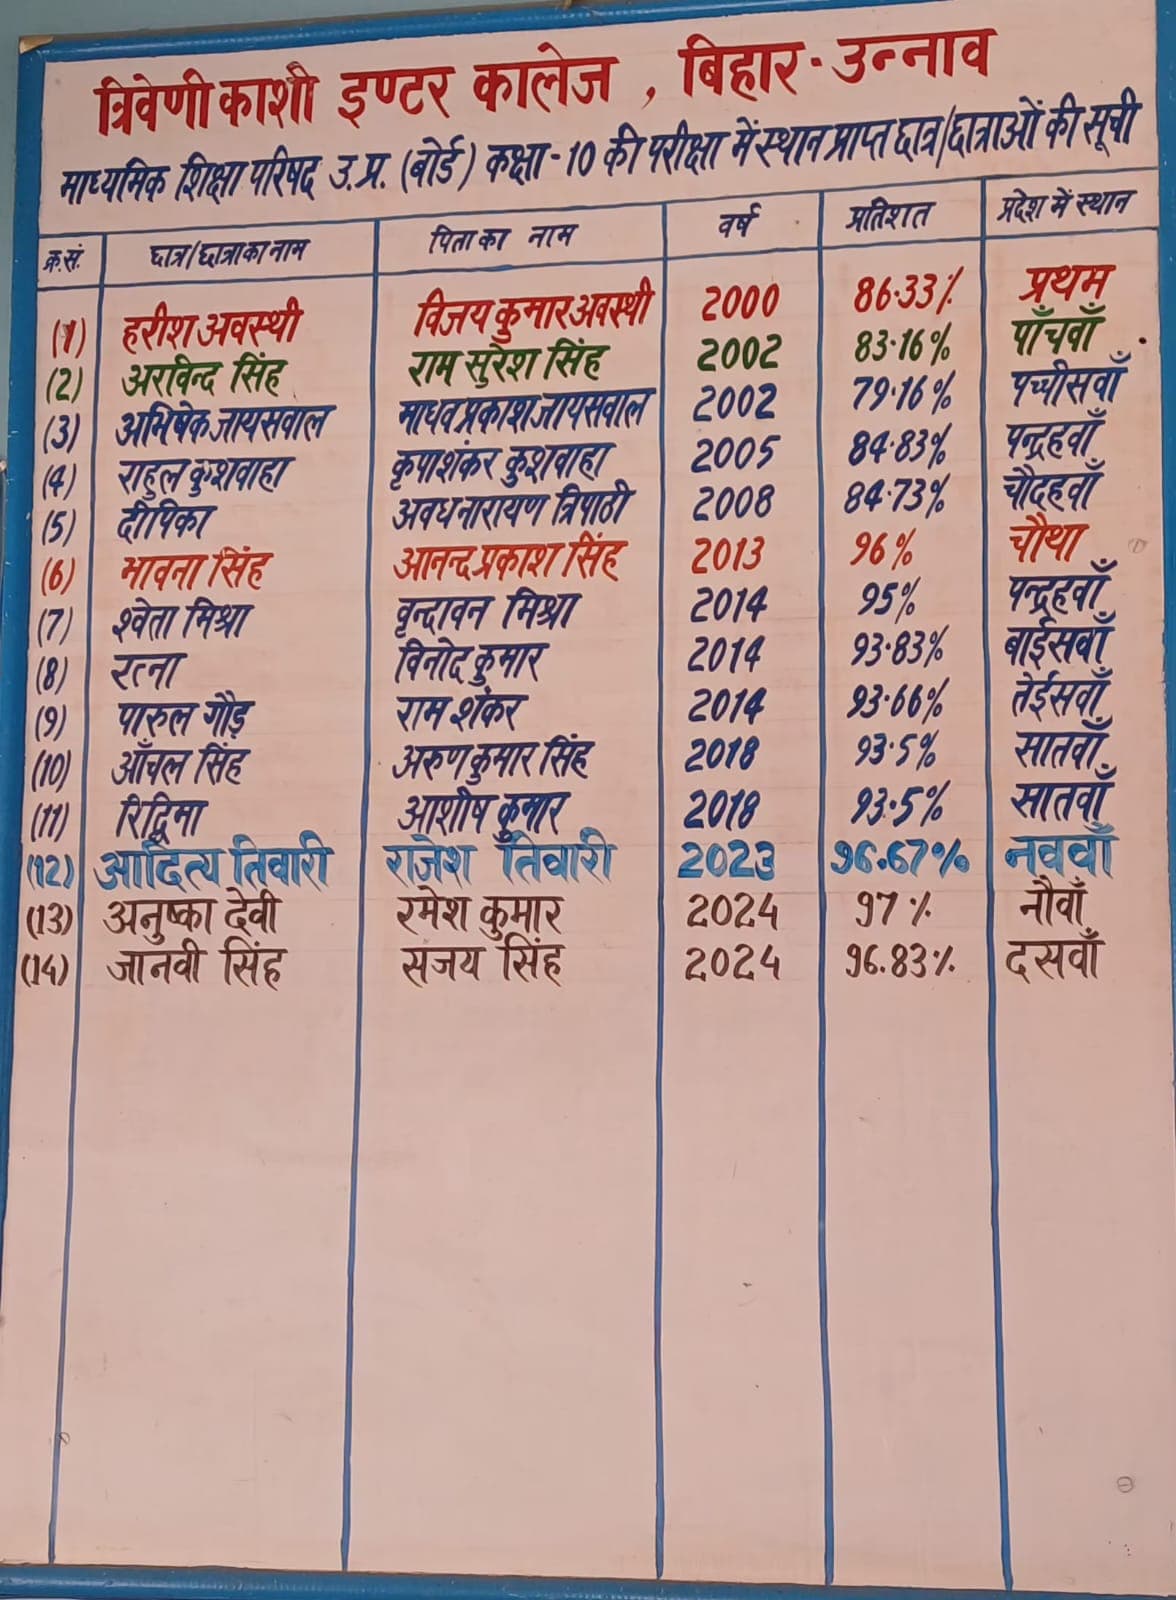 त्रिवेणी काशी इण्टर कालेज , बिहार - उन्नाव
माध्यमिक शिक्षा परिषद उ.प्र. (बोर्ड) कक्षा - 10 की परीक्षा में स्थान प्राप्त छात्र/छात्राओं की सूची
क्र.सं. छात्र/छात्रा का नाम पिता का नाम वर्ष प्रतिशत प्रदेश में स्थान
(1) हरीश अवस्थी विजय कुमार अवस्थी 2000 86.33% प्रथम
(2) अरविन्द सिंह राम सुरेश सिंह 2002 83.16% पाँचवाँ
(3) अभिषेक जायसवाल माधव प्रकाश जायसवाल 2002 79.16% पच्चीसवाँ
(4) राहुल कुशवाहा कृपाशंकर कुशवाहा 2005 84.83% पन्द्रहवाँ
(5) दीपिका अवधनारायण त्रिपाठी 2008 84.73% चौदहवाँ
(6) भावना सिंह आनन्द प्रकाश सिंह 2013 96% चौथा
(7) श्वेता मिश्रा वृन्दावन मिश्रा 2014 95% पन्द्रहवाँ
(8) रत्ना विनोद कुमार 2014 93.83% बाईसवाँ
(9) पारुल गौड़ राम शंकर 2014 93.66% तेईसवाँ
(10) आँचल सिंह अरुण कुमार सिंह 2018 93.5% सातवाँ
(11) रिद्धिमा आशीष कुमार 2018 93.5% सातवाँ
(12) आदित्य तिवारी राजेश तिवारी 2023 96.67% नववाँ
(13) अनुष्का देवी रमेश कुमार 2024 97% नौवाँ
(14) जानवी सिंह संजय सिंह 2024 96.83% दसवाँ